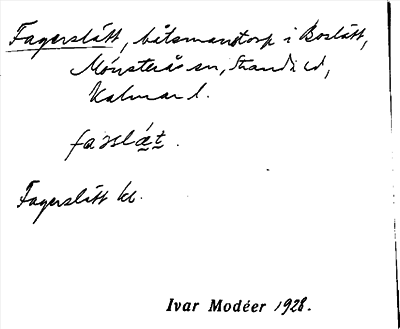 Fagerslätt, båtsmanstorp i Boslätt,
Mönsterås sn, Stranda hd,
Kalmar l.
Fagerslätt kl.
Ivar Modéer 1928.